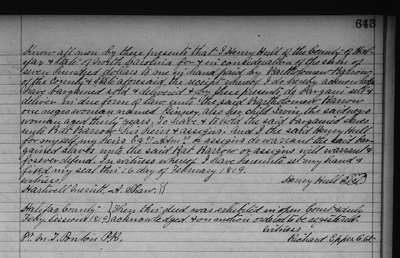 643
Know all men by these presents that I Henry Hull of the County of Hal-
ifax & State of North Carolina for & in consideration of the sum of
seven hundred dollars to me in hand paid by Bartholomew Barrow
of the County & State aforesaid, the receipt whereof I do hereby acknowledge
have bargained sold & delivered & by these presents do bargain sell &
deliver in due form of law unto the said Bartholomew Barrow
one negro woman named also her child the said negro
woman aged thirty years, To have & to hold the said bargained slaves
unto Batt Barrow his heirs & assigns. And I the said Henry Hull
for myself my heirs assigns do warrant the said bar-
gained slaves unto the said Batt Barrow or assigns will warrant &
forever defend. In witness whereof I have hereunto set my hand &
fixed my seal this 16 day of February 1819.
Witness Henry Hull
Shaw
Halifax County Then this deed was exhibited in open Court & duly
Feby. Session 1819 acknowledged & on motion ordered to be registered.
Witness
Richard Eppes